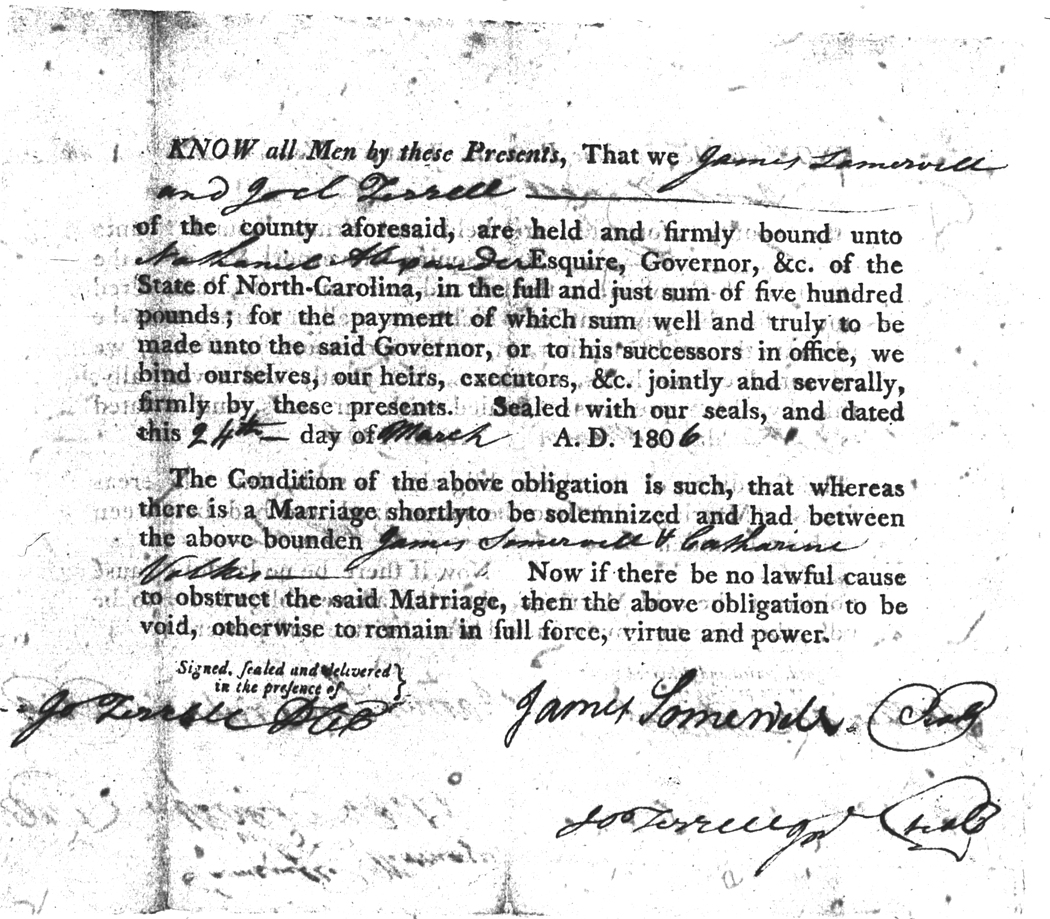 KNOW all Men by these Presents, That we James Somervell
and Joel Terrell
of the county aforesaid, are held and firmly bound unto
Nathaniel Alexander Esquire, Governor, &c. of the
State of North-Carolina, in the full and just sum of five hundred
pounds; for the payment of which sum well and truly to be
made unto the said Governor, or to his successors in office, we
bind ourselves, our heirs, executors, &c. jointly and severally,
firmly by these presents. Sealed with our seals, and dated
this 24th day of March A. D. 1806
The Condition of the above obligation is such, that whereas
there is a Marriage shortlyto be solemnized and had between
the above bounden James Somervell & Catharine
Now if there be no lawful cause
to obstruct the said Marriage, then the above obligation to be
void, otherwise to remain in full force, virtue and power.
Signed, ſealed and delivered
in the preſence of
Jo Terrell
James Somervell. Seal
Jo Terrell Seal